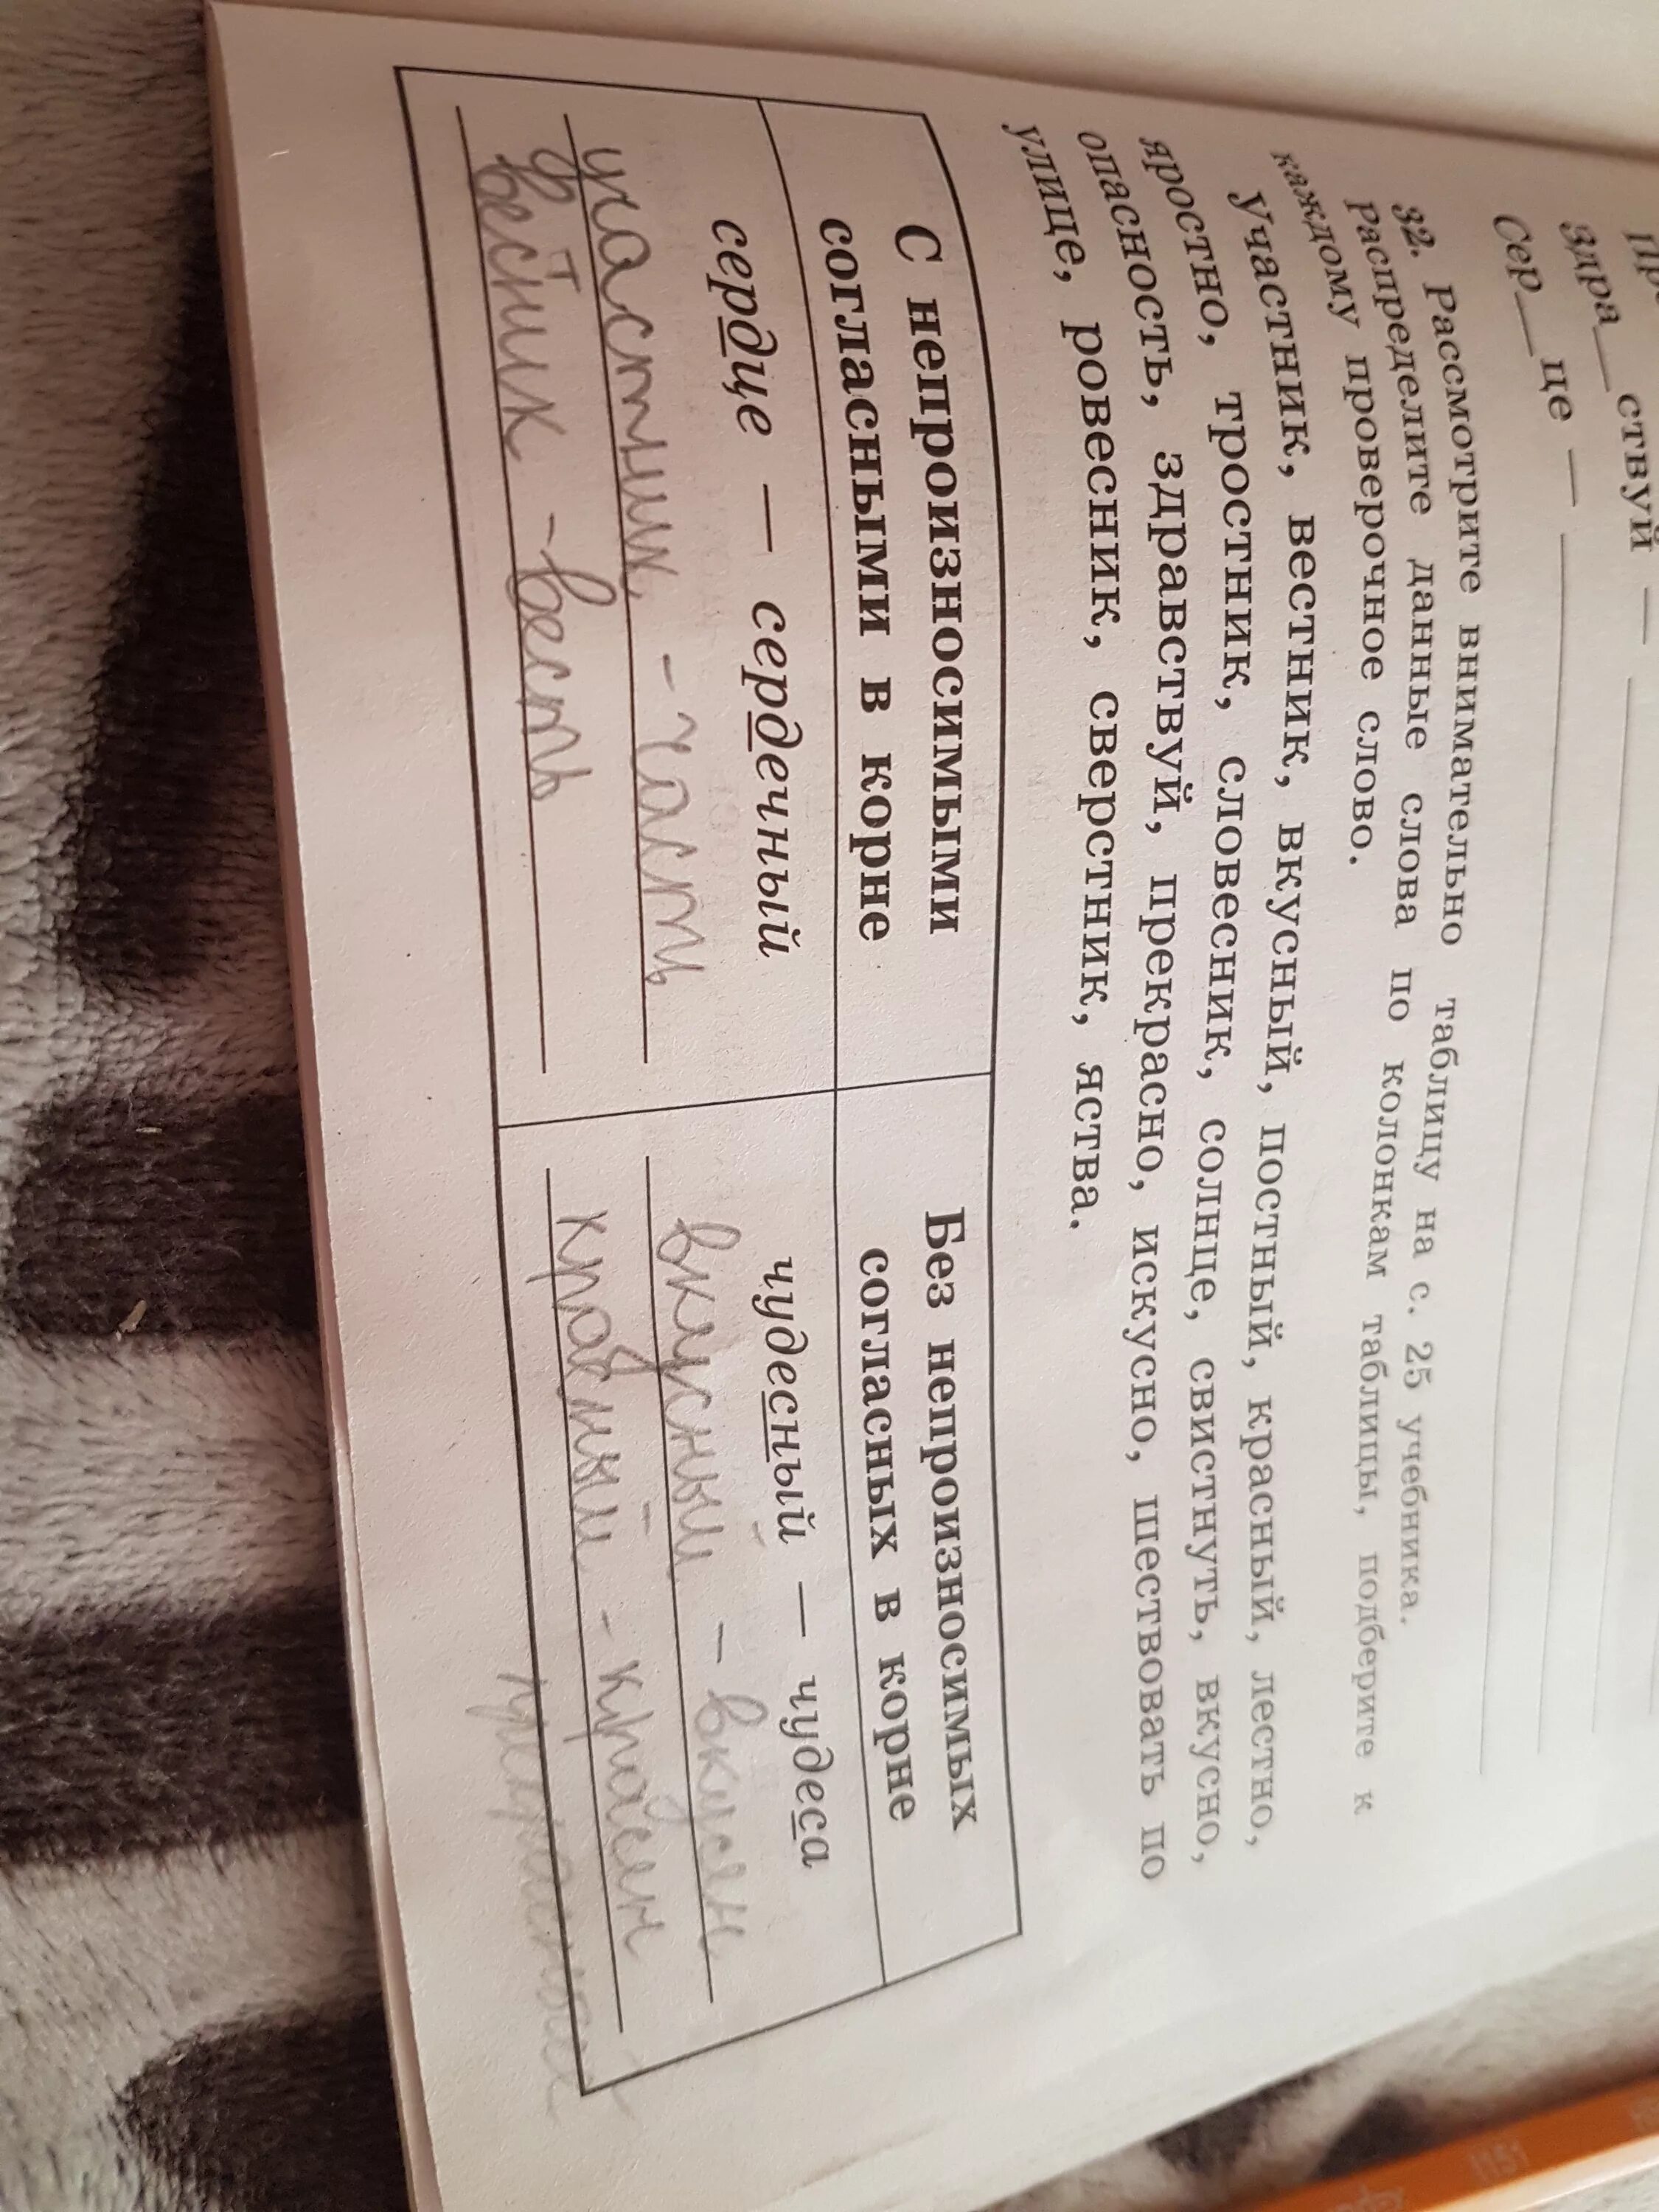 Здра__ствуй — ____
Сер__це — ____
32. Рассмотрите внимательно таблицу на с. 25 учебника.
Распределите данные слова по колонкам таблицы, подберите к
каждому проверочное слово.
Участник, вестник, вкусный, постный, красный, лестно,
яростно, тростник, словесник, солнце, свистнуть, вкусно,
опасность, здравствуй, прекрасно, искусно, шествовать по
улице, ровесник, сверстник, яства.
С непроизносимыми
согласными в корне
Без непроизносимых
согласных в корне
сердце — сердечный
чудесный — чудеса
участник - часть
вкусный - вкусен
вестник - весть
красный - красен
1151